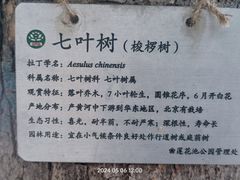 七叶树（梭椤树）
拉丁学名：Aesulus chinensis
科属名称：七叶树科 七叶树属
观赏特征：落叶乔木，7小叶轮生，圆锥花序，6月开白花
产地分布：产黄河中下游到华东地区，北京有栽培
生态习性：喜光，耐半荫，不耐严寒；深根性，寿命长
园林用途：宜在小气候条件良好处作行道树或庭荫树
莲花池公园管理处
2024.05.06 12:00